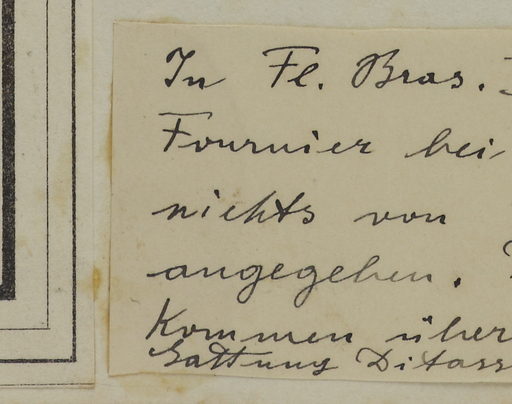 In Fl. Bras.
Fournier bei
nichts von
angegeben.
Kommen über
Gattung Ditass